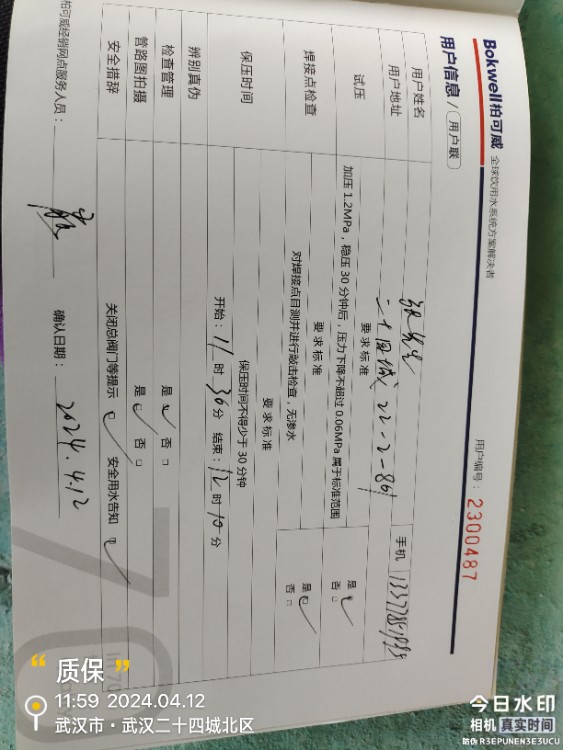 Bokwell柏可威 全球饮用水系统方案解决者
用户信息 / 用户联
用户编号：2300487
用户姓名
手机
用户地址 二十四城 22-2-861
要求标准
试压 加压 1.2MPa，稳压 30 分钟后，压力下降不超过 0.06MPa 属于标准范围 是 否
要求标准
焊接点检查 对焊接点目测并进行敲击检查，无渗水 是 否
要求标准
保压时间 保压时间不得少于 30 分钟
开始：11 时 30 分 结束：12 时 10 分
辨别真伪
检查管理 是 否
管路图拍摄 是 否
安全措辞 关闭总阀门等提示 安全用水告知
柏可威经销网点服务人员：
确认日期：2024.4.12
“质保”
11:59 2024.04.12
武汉市·武汉二十四城北区
今日水印
相机 真实时间
防伪 R3EPUNEN3E3UCU